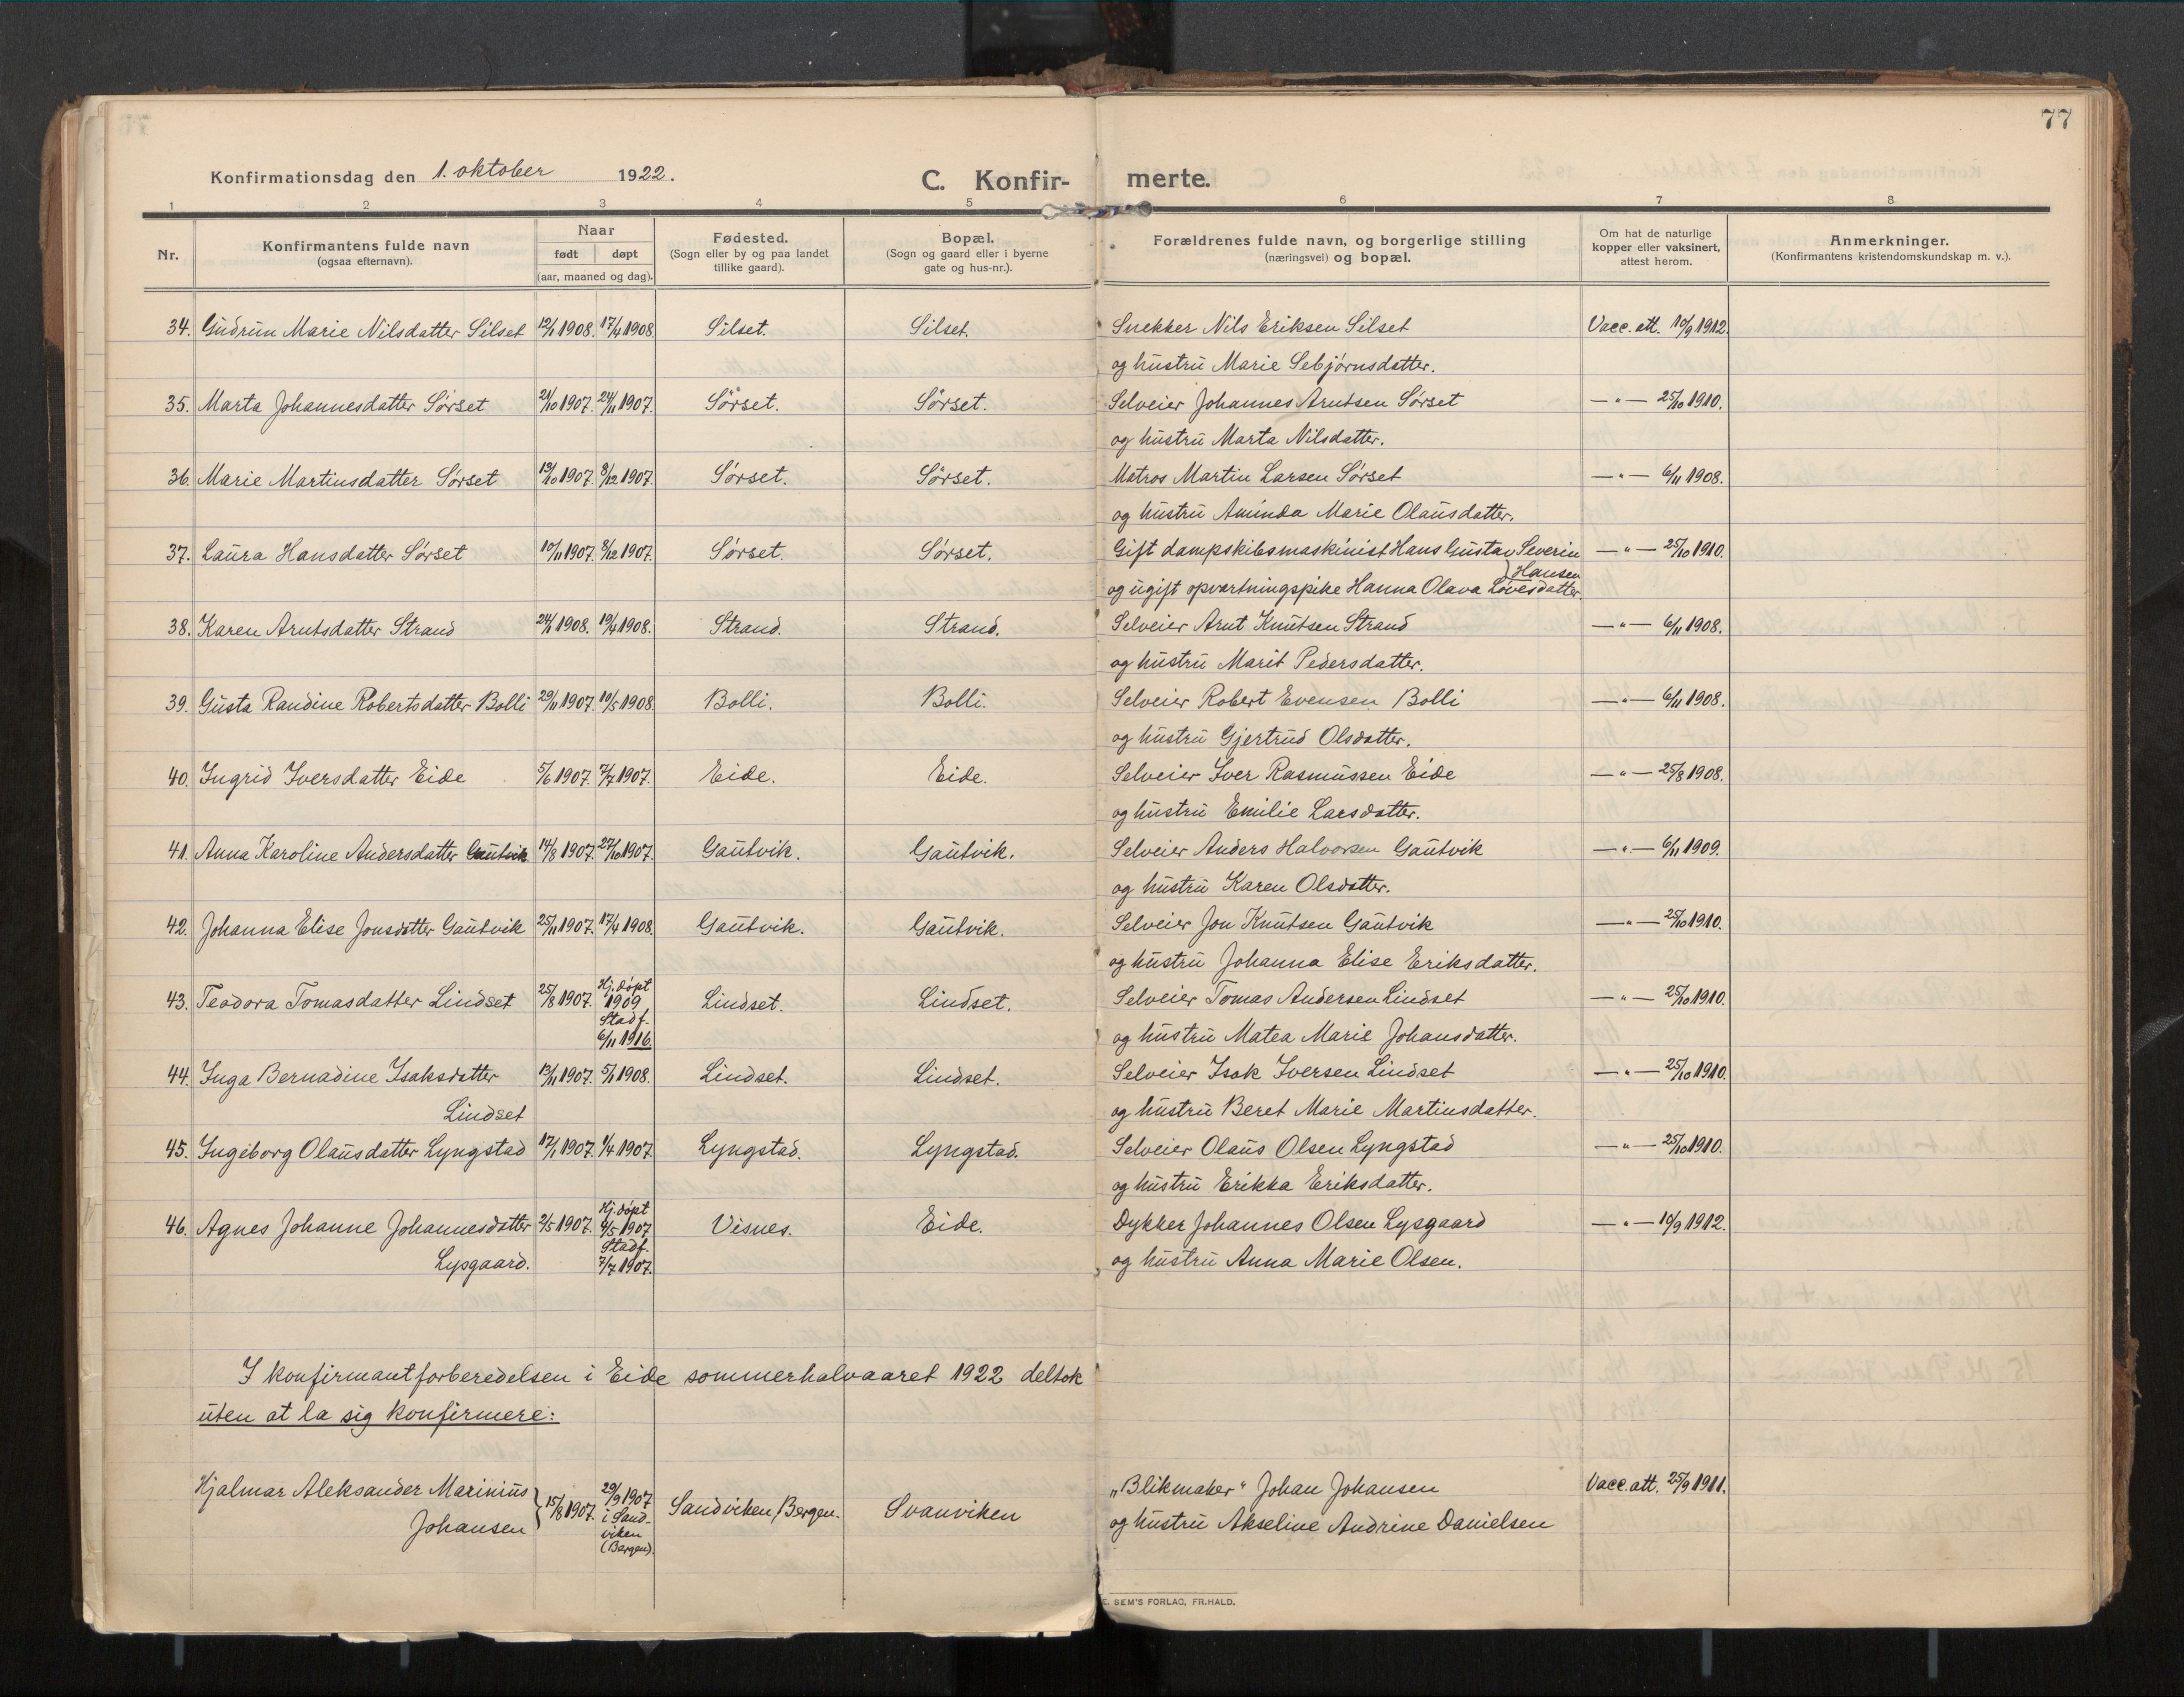 77
Konfirmationsdag den 1. oktober 1922. C. Konfir- merte.
1 2 3 4 5 6 7 8
Nr. Konfirmantens fulde navn (ogsaa efternavn). Naar født døpt (aar, maaned og dag). Fødested. (Sogn eller by og paa landet tillike gaard). Bopæl. (Sogn og gaard eller i byerne gate og hus-nr.). Forældrenes fulde navn, og borgerlige stilling (næringsvei) og bopæl. Om hat de naturlige kopper eller vaksinert, attest herom. Anmerkninger. (Konfirmantens kristendomskundskap m. v.).
34. Gudrun Marie Nilsdatter Silset 12/1 1908. 17/4 1908. Silset. Silset. Snekker Nils Eriksen Silset Vacc. att. 10/9 1912.
og hustru Marie Sebjørnsdatter.
35. Marta Johannesdatter Sørset 21/10 1907. 24/11 1907. Sørset. Sørset. Selveier Johannes Arntsen Sørset —"— 25/10 1910.
og hustru Marta Nilsdatter.
36. Marie Martinsdatter Sørset 13/10 1907. 8/12 1907. Sørset. Sørset. Matros Martin Larsen Sørset —"— 6/11 1908.
og hustru Aminda Marie Olausdatter.
37. Laura Hansdatter Sørset 10/11 1907. 8/12 1907. Sørset. Sørset. Gift dampskibsmaskinist Hans Gustav Severin —"— 25/10 1910.
Hansen
og ugift opvartningspike Hanna Olava Lovesdatter.
38. Karen Arntsdatter Strand 24/1 1908. 19/4 1908. Strand. Strand. Selveier Arnt Knutsen Strand —"— 6/11 1908.
og hustru Marit Pedersdatter.
39. Gusta Randine Robertsdatter Bolli 29/11 1907. 10/5 1908. Bolli. Bolli. Selveier Robert Evensen Bolli —"— 6/11 1908.
og hustru Gjertrud Olsdatter.
40. Ingrid Iversdatter Eide 5/6 1907. 7/7 1907. Eide. Eide. Selveier Iver Rasmussen Eide —"— 25/8 1908.
og hustru Emilie Larsdatter.
41. Anna Karoline Andersdatter Gautvik 14/8 1907. 27/10 1907. Gautvik. Gautvik. Selveier Anders Halvorsen Gautvik —"— 6/11 1909.
og hustru Karen Olsdatter.
42. Johanna Elise Jonsdatter Gautvik 25/11 1907. 17/4 1908. Gautvik. Gautvik. Selveier Jon Knutsen Gautvik —"— 25/10 1910.
og hustru Johanna Elise Eriksdatter.
43. Teodora Tomasdatter Lindset 25/8 1907. Hj. døpt 1909 Stadf. 6/11 1916. Lindset. Lindset. Selveier Tomas Andersen Lindset —"— 25/10 1910.
og hustru Matea Marie Johansdatter.
44. Inga Bernadine Isaksdatter 13/11 1907. 5/1 1908. Lindset. Lindset. Selveier Isak Iversen Lindset —"— 25/10 1910.
Lindset og hustru Beret Marie Martinsdatter.
45. Ingeborg Olausdatter Lyngstad 17/1 1907. 1/4 1907. Lyngstad. Lyngstad. Selveier Olaus Olsen Lyngstad —"— 25/10 1910.
og hustru Erikka Eriksdatter.
46. Agnes Johanne Johannesdatter 2/5 1907. Hj. døpt 4/5 1907 Stadf. 7/7 1907. Visnes. Eide. Dykker Johannes Olsen Lysgaard —"— 10/9 1912.
Lysgaard. og hustru Anna Marie Olsen.
I konfirmantforberedelsen i Eide sommerhalvaaret 1922 deltok
uten at la sig konfirmere:
Hjalmar Aleksander Marinius } 15/8 1907. 29/9 1907 i Sandviken (Bergen). Sandviken/Bergen. Svanviken "Blikmaker" Johan Johansen Vacc. att. 25/9 1911.
Johansen og hustru Akseline Andrine Danielsen
E. SEM'S FORLAG, FR.HALD.